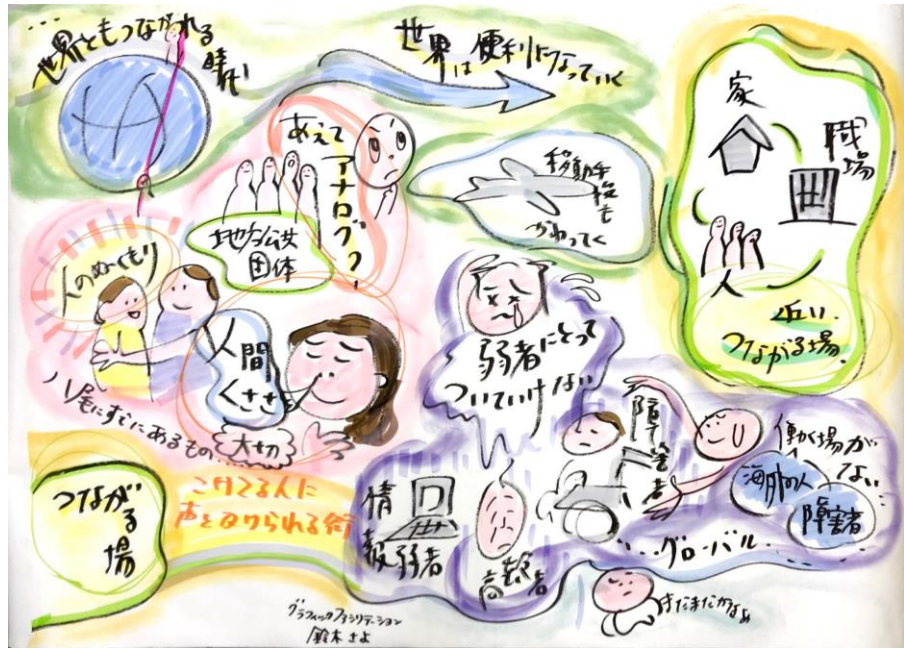 …世界ともつながれる
時代!
世界は便利になっていく
あえて
アナログ?
地方公共
団体
移動手
段も
かわってく
家
職場
人
近い
つながる場
人のぬくもり
人間
くささ
八尾にすでにあるもの…大切
弱者にとって
ついていけない
障害者
働く場が
ない…
海外の人
障害者
…グローバル…
情報弱者
高齢者
まだまだかなぁ
つながる
場
こけてる人に
声をかけられる街
グラフィックファシリテーション
鈴木さよ